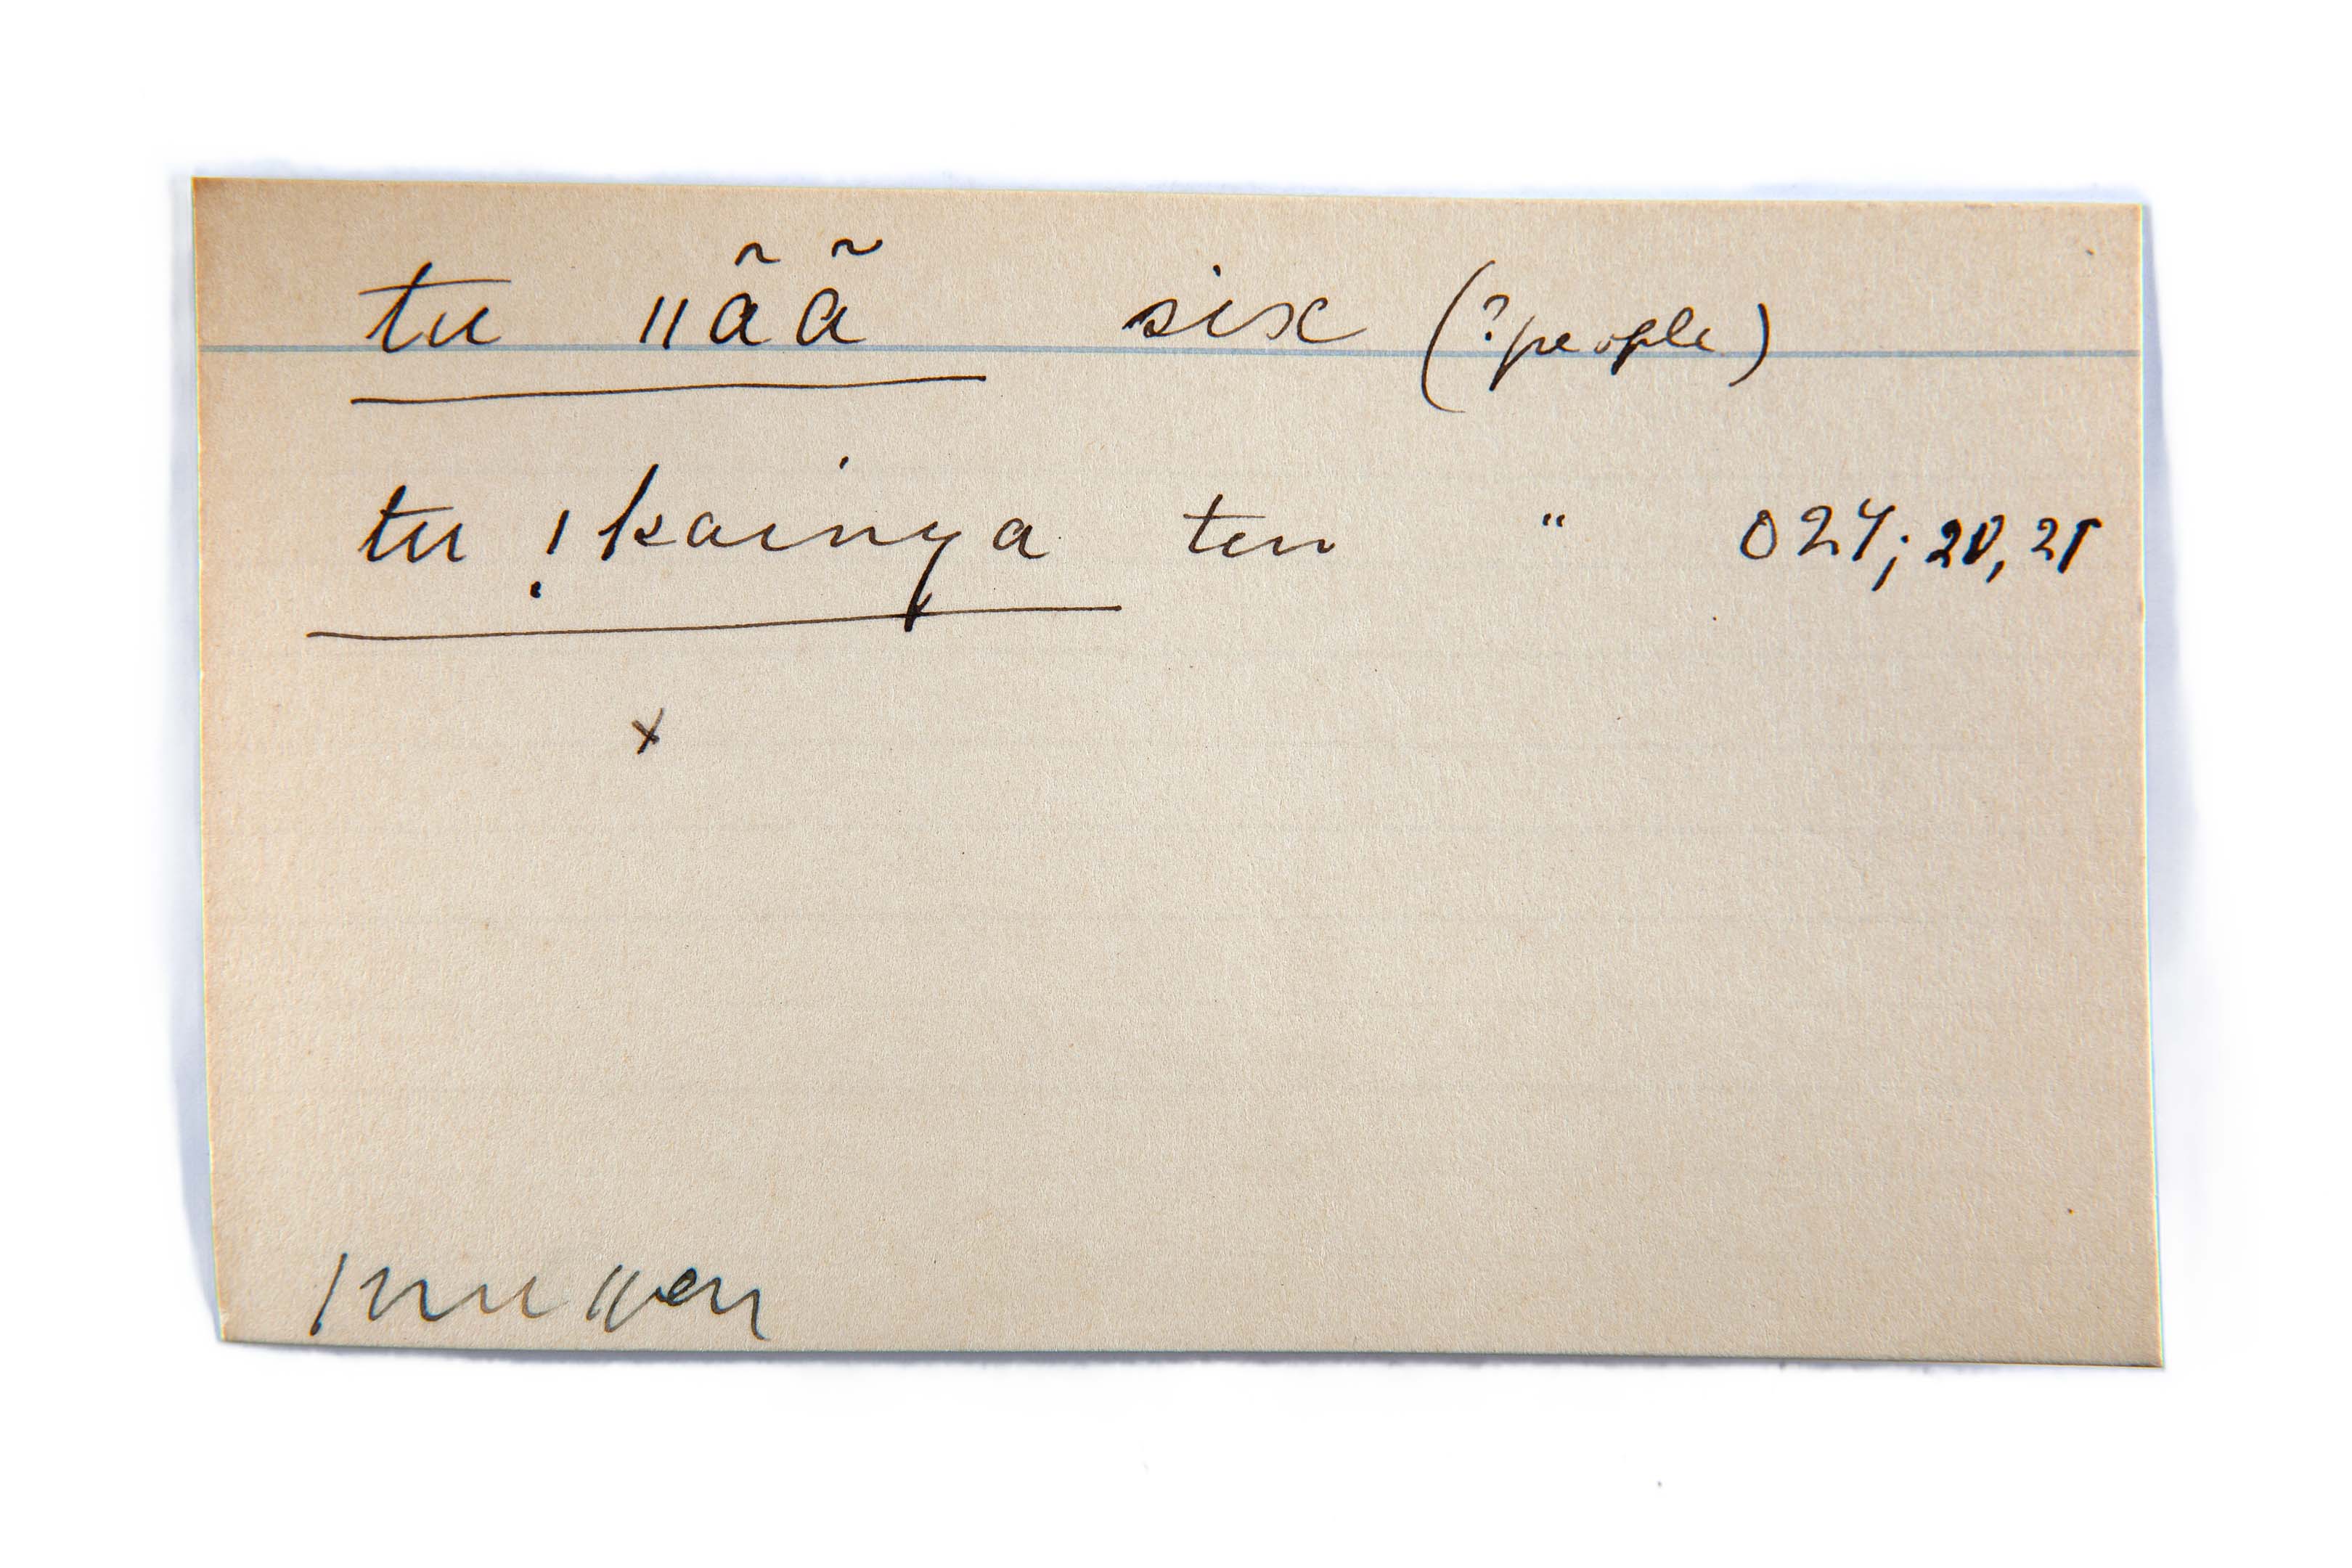 tu ǁãã six (?people)
tu !kainya ten " 024; 20, 21
x
/nu //en